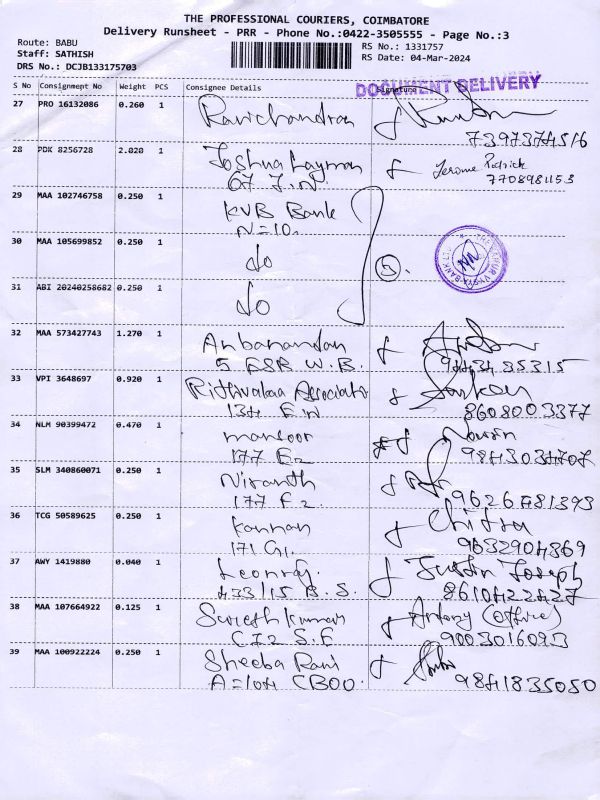 THE PROFESSIONAL COURIERS, COIMBATORE
Delivery Runsheet - PRR - Phone No.:0422-3505555 - Page No.:3
Route: BABU
Staff: SATHISH
DRS No.: DCJB133175703
RS No.: 1331757
RS Date: 04-Mar-2024
DOCUMENT DELIVERY
S No Consignment No Weight PCS Consignee Details Signature
27 PRO 16132086 0.260 1 Ravichandran
7397374516
28 PDK 8256728 2.020 1 Joshua Layman Jerome Patrick
67 J.N. 7708981153
29 MAA 102746758 0.250 1 KVB Bank
N=10.
30 MAA 105699852 0.250 1 do 3.
31 ABI 20240258682 0.250 1 do
32 MAA 573427743 1.270 1 Anbanandan
5 FSR W.B. 9434435315
33 VPI 3648697 0.920 1 Rithvakaa Associate
134 E.N 8608003377
34 NLM 90399472 0.470 1 mansoor
177 F2 9843034707
35 SLM 340860071 0.250 1 Niranth
177 F2. 9626481393
36 TCG 50589625 0.250 1 Kannan Chitra
171 G1. 9632904869
37 AWY 1419880 0.040 1 Leonraj Justin Joseph
433/15 B.S. 8610422427
38 MAA 107664922 0.125 1 Suresh Kumar Antony (office)
C72 S.F 9003016093
39 MAA 100922224 0.250 1 Sheeba Rani
A=104 CBOO. 9841835050